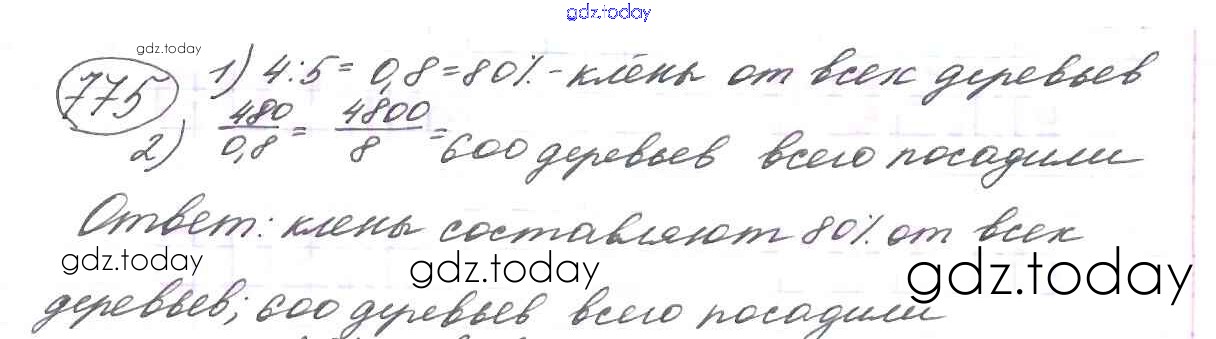 gdz.today
gdz.today
775 1) 4:5 = 0,8 = 80% - клёны от всех деревьев
2) 480/0,8 = 4800/8 = 600 деревьев всего посадили
Ответ: клены составляют 80% от всех
gdz.today gdz.today gdz.today
деревьев; 600 деревьев всего посадили